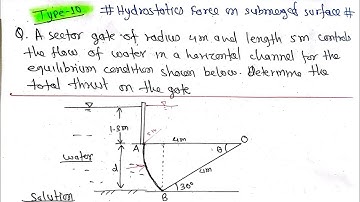 Type-10 # Hydrostatics Force on submerged surface #
Q. A sector gate of radius 4m and length 5m controls
the flow of water in a horizontal channel for the
equilibrium condition shown below. Determine the
total thrust on the gate
1.5m
4m
A
θ
O
water
d
4m
30°
B
Solution